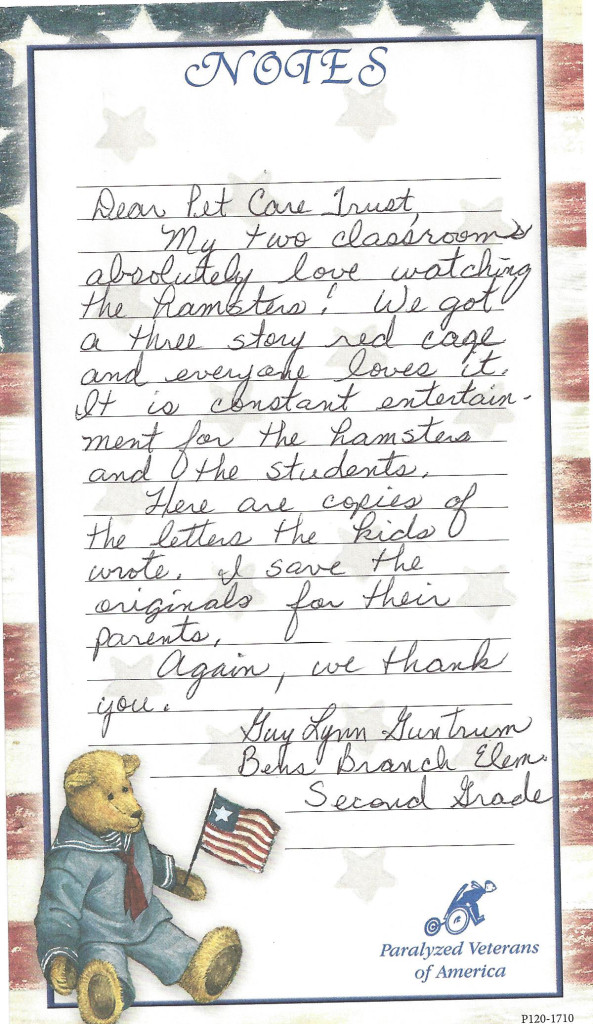 NOTES
Dear Pet Care Trust,
My two classrooms
absolutely love watching
the hamsters! We got
a three story red cage
and everyone loves it.
It is constant entertain-
ment for the hamsters
and the students.
Here are copies of
the letters the kids
wrote. I save the
originals for their
parents.
Again, we thank
you.
Guy Lynn Guntrum
Bens Branch Elem.
Second Grade
Paralyzed Veterans
of America
P120-1710